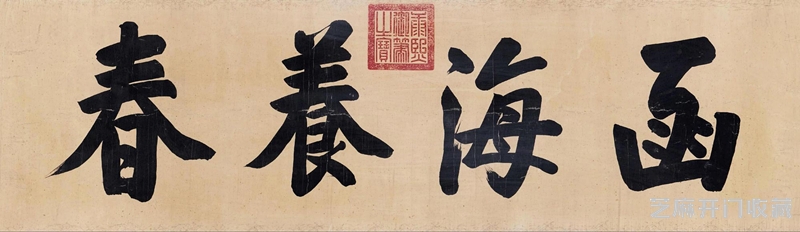 函海養春
康熙御筆之寶
芝麻开门收藏